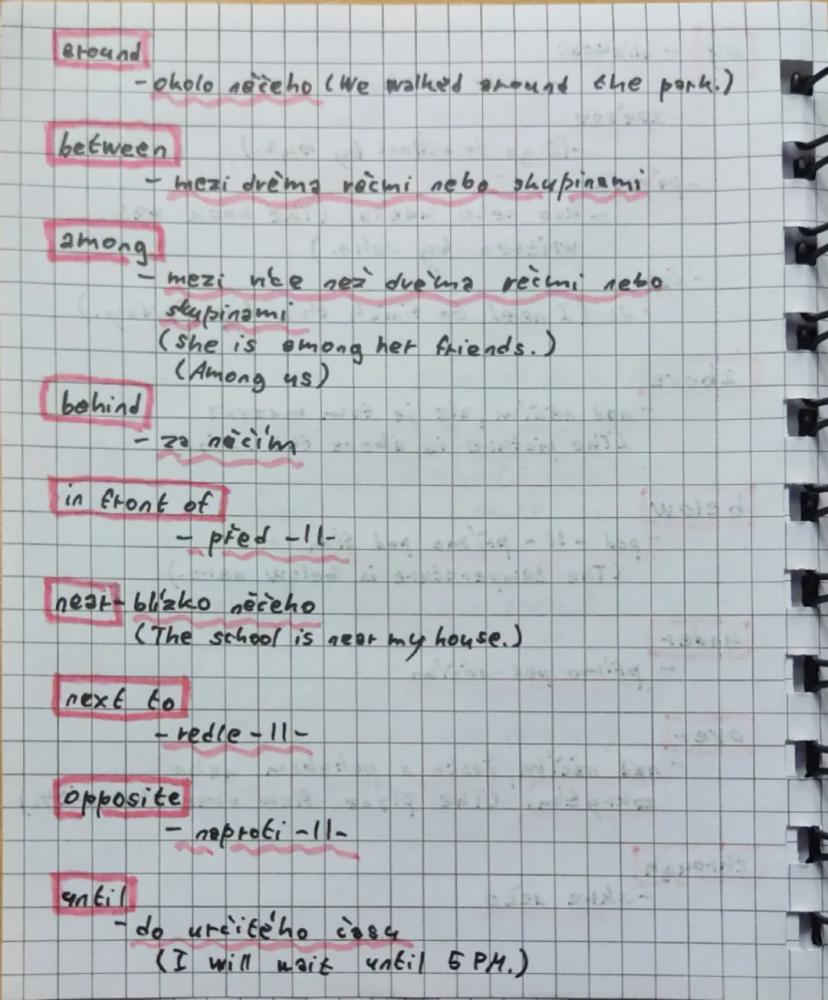 around
- okolo něčeho (We walked around the park.)
between
- mezi dvěma věcmi nebo skupinami
among
- mezi více než dvěma věcmi nebo
skupinami
(She is among her friends.)
(Among us)
behind
- za něčím
in front of
- před -11-
near - blízko něčeho
(The school is near my house.)
next to
- vedle -11-
opposite
- naproti -11-
until
- do určitého času
(I will wait until 5 PM.)